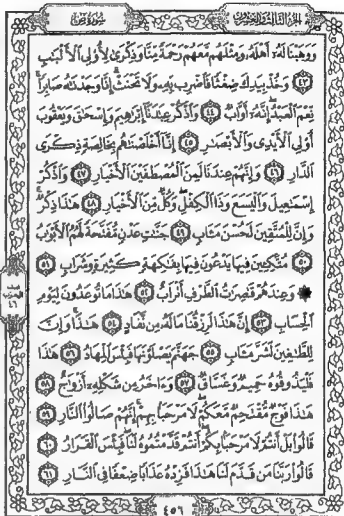 الجزء الثالث والعشرون
سورة ص
وَوَهَبْنَا لَهُۥٓ أَهْلَهُۥ وَمِثْلَهُم مَّعَهُمْ رَحْمَةً مِّنَّا وَذِكْرَىٰ لِأُو۟لِى ٱلْأَلْبَٰبِ
٤٣ وَخُذْ بِيَدِكَ ضِغْثًا فَٱضْرِب بِّهِۦ وَلَا تَحْنَثْ إِنَّا وَجَدْنَٰهُ صَابِرًا
نِّعْمَ ٱلْعَبْدُ إِنَّهُۥٓ أَوَّابٌ ٤٤ وَٱذْكُرْ عِبَٰدَنَآ إِبْرَٰهِيمَ وَإِسْحَٰقَ وَيَعْقُوبَ
أُو۟لِى ٱلْأَيْدِى وَٱلْأَبْصَٰرِ ٤٥ إِنَّآ أَخْلَصْنَٰهُم بِخَالِصَةٍ ذِكْرَى
ٱلدَّارِ ٤٦ وَإِنَّهُمْ عِندَنَا لَمِنَ ٱلْمُصْطَفَيْنَ ٱلْأَخْيَارِ ٤٧ وَٱذْكُرْ
إِسْمَٰعِيلَ وَٱلْيَسَعَ وَذَا ٱلْكِفْلِ وَكُلٌّ مِّنَ ٱلْأَخْيَارِ ٤٨ هَٰذَا ذِكْرٌ
وَإِنَّ لِلْمُتَّقِينَ لَحُسْنَ مَـَٔابٍ ٤٩ جَنَّٰتِ عَدْنٍ مُّفَتَّحَةً لَّهُمُ ٱلْأَبْوَٰبُ
٥٠ مُتَّكِـِٔينَ فِيهَا يَدْعُونَ فِيهَا بِفَٰكِهَةٍ كَثِيرَةٍ وَشَرَابٍ ٥١
۞ وَعِندَهُمْ قَٰصِرَٰتُ ٱلطَّرْفِ أَتْرَابٌ ٥٢ هَٰذَا مَا تُوعَدُونَ لِيَوْمِ
ٱلْحِسَابِ ٥٣ إِنَّ هَٰذَا لَرِزْقُنَا مَا لَهُۥ مِن نَّفَادٍ ٥٤ هَٰذَا وَإِنَّ
لِلطَّٰغِينَ لَشَرَّ مَـَٔابٍ ٥٥ جَهَنَّمَ يَصْلَوْنَهَا فَبِئْسَ ٱلْمِهَادُ ٥٦ هَٰذَا
فَلْيَذُوقُوهُ حَمِيمٌ وَغَسَّاقٌ ٥٧ وَءَاخَرُ مِن شَكْلِهِۦٓ أَزْوَٰجٌ ٥٨
هَٰذَا فَوْجٌ مُّقْتَحِمٌ مَّعَكُمْ لَا مَرْحَبًۢا بِهِمْ إِنَّهُمْ صَالُوا۟ ٱلنَّارِ ٥٩
قَالُوا۟ بَلْ أَنتُمْ لَا مَرْحَبًۢا بِكُمْ أَنتُمْ قَدَّمْتُمُوهُ لَنَا فَبِئْسَ ٱلْقَرَارُ ٦٠
قَالُوا۟ رَبَّنَا مَن قَدَّمَ لَنَا هَٰذَا فَزِدْهُ عَذَابًا ضِعْفًا فِى ٱلنَّارِ ٦١
نصف
الحزب
٤٦
٤٥٦